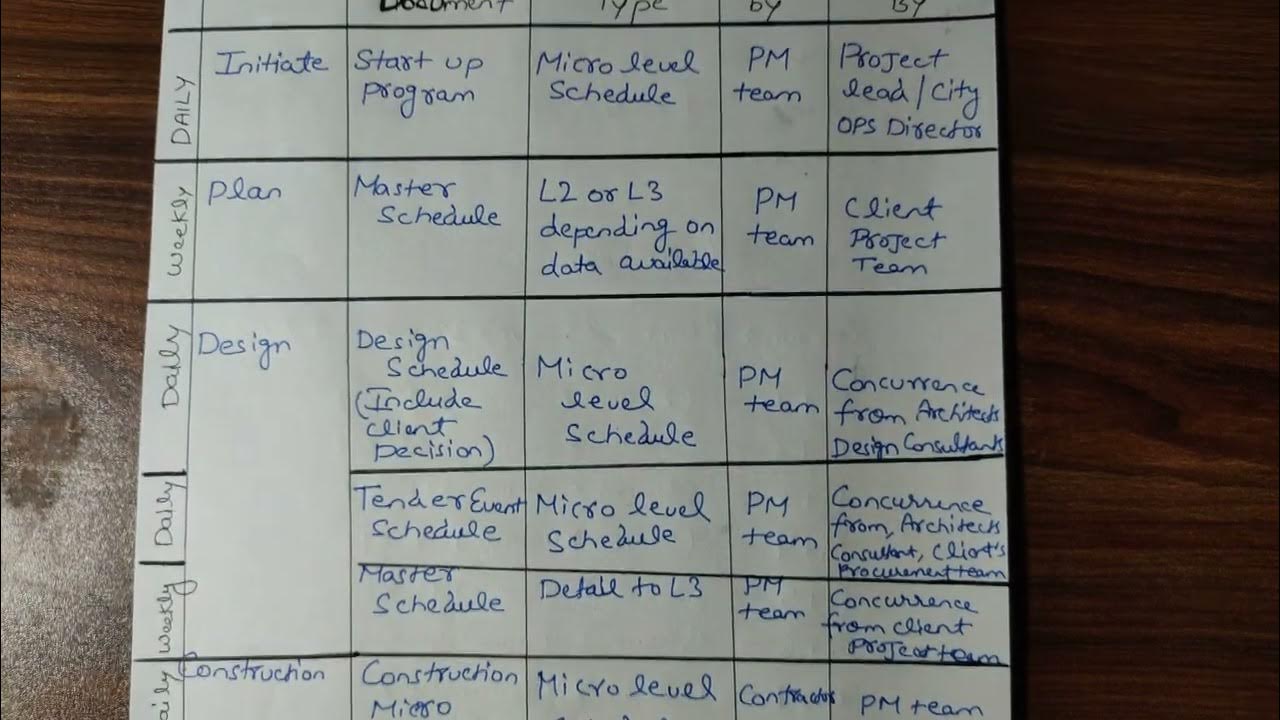 Document Type by By
DAILY Initiate Start up Micro level PM Project
program Schedule team lead/City
OPS Director
Weekly Plan Master L2 or L3 PM Client
Schedule depending on team Project
data available Team
Daily Design Design Micro PM Concurrence
Schedule level team from Architects
(Include Schedule Design Consultants
Client
Decision)
Daily Tender Event Micro level PM Concurrence
Schedule Schedule team from, Architects
Consultant, Client's
Procurement team
Weekly Master Detail to L3 PM Concurrence
Schedule team from client
Project team
Construction Construction Micro level Contractor PM team
Micro